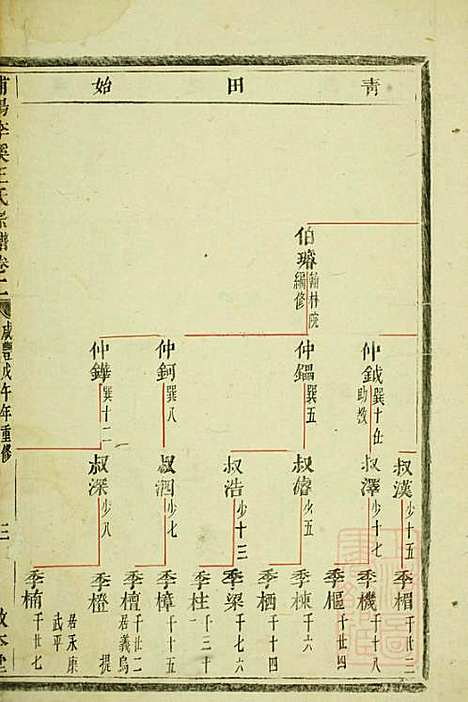 青田始
伯璿 翰林院編修
仲鉞 巽十 仕助教
仲鎾 巽五
仲鈳 巽八
仲鏵 巽十二
叔漢 少十五
叔澤 少十七
叔濬 少五
叔浩 少十三
叔泗 少七
叔深 少八
季楣 千廿二
季機 千十八
季樞 千廿四
季棟 千六
季栖 千十四
季梁 千七六
季柱 千三十一
季樟 千十五
季檀 千廿二 居義烏
季橙 提
季楠 千廿七 居永康武平
浦陽李溪王氏宗譜卷十二
咸豐戊午年重修
三
敦本堂